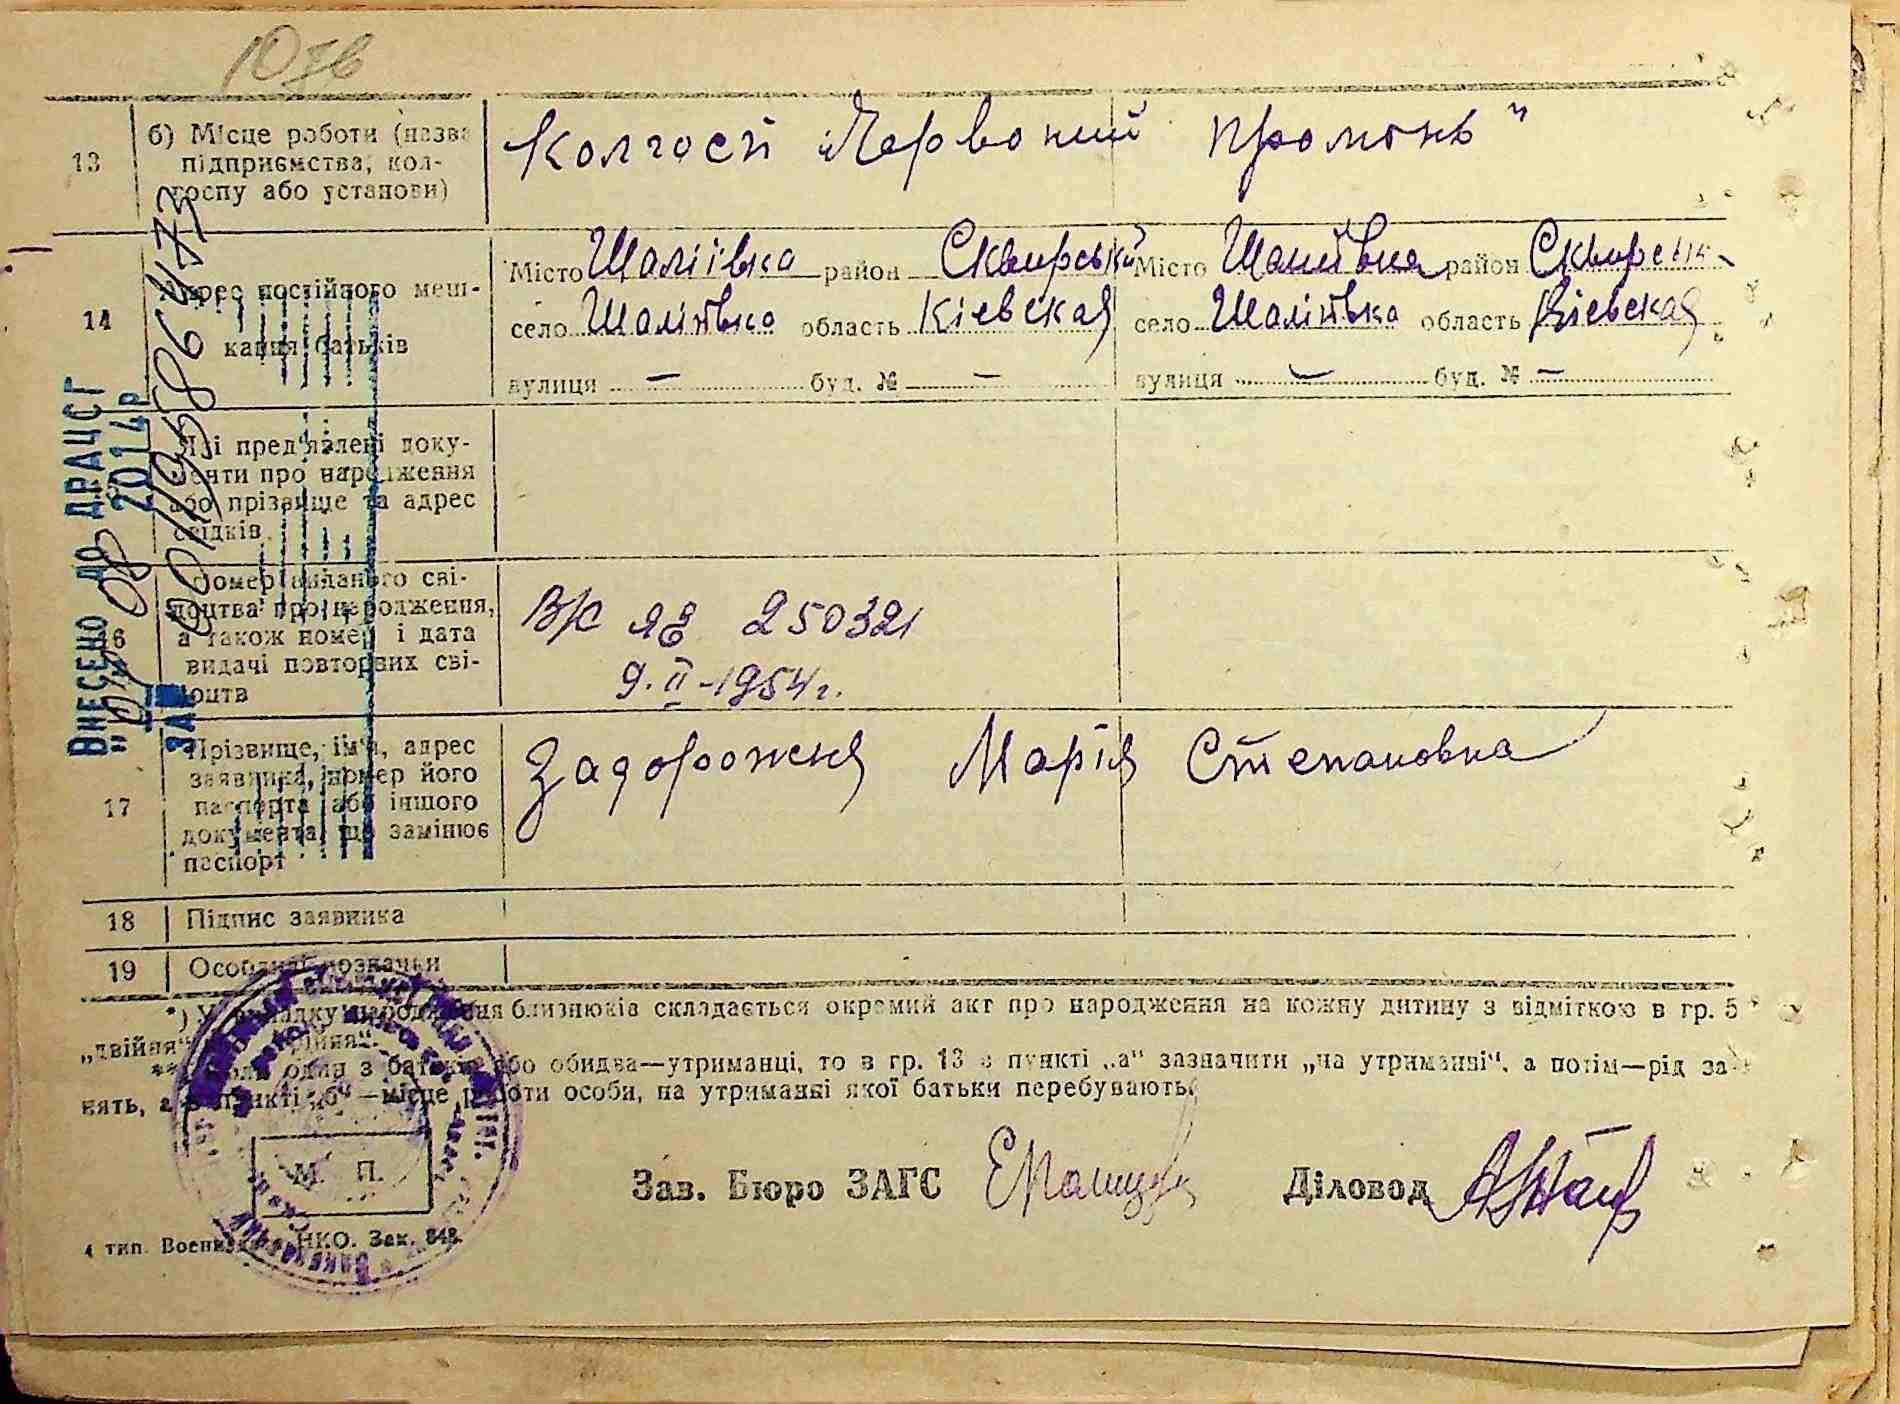 13
б) Місце роботи (назва
підприємства, кол-
госпу або установи)
Колгосп „Червоний промінь"
14
Адрес постійного меш-
кання батьків
Місто Шаліївка район Сквирський Місто Шаліївка район Сквирськ
село Шаліївка область Кіевская село Шаліївка область Кіевская
вулиця — буд. № — вулиця — буд. № —
Які пред'явлені доку-
менти про народження
або прізвище та адрес
свідків
16
Номер виданого сві-
доцтва про народження,
а також номер і дата
видачі повторних сві-
доцтв
ЯЕ 250321
9.II-1954г.
17
Прізвище, ім'я, адрес
заявника, номер його
паспорта або іншого
документа, що замінює
паспорт
Задорожня Марія Степановна
18 Підпис заявника
19 Особливі позначки
*) У випадку народження близнюків складається окремий акт про народження на кожну дитину з відміткою в гр. 5
„двійня"
** Коли один з батьків або обидва—утриманці, то в гр. 13 в пункті „а" зазначити „на утриманні", а потім—рід за-
нять, а в пункті „б"—місце роботи особи, на утриманні якої батьки перебувають.
М. П.
Зав. Бюро ЗАГС Діловод
4 тип. НКО. Зак. 848.
Внесено до ДРАЦСГ
08 2014р
ЗАП